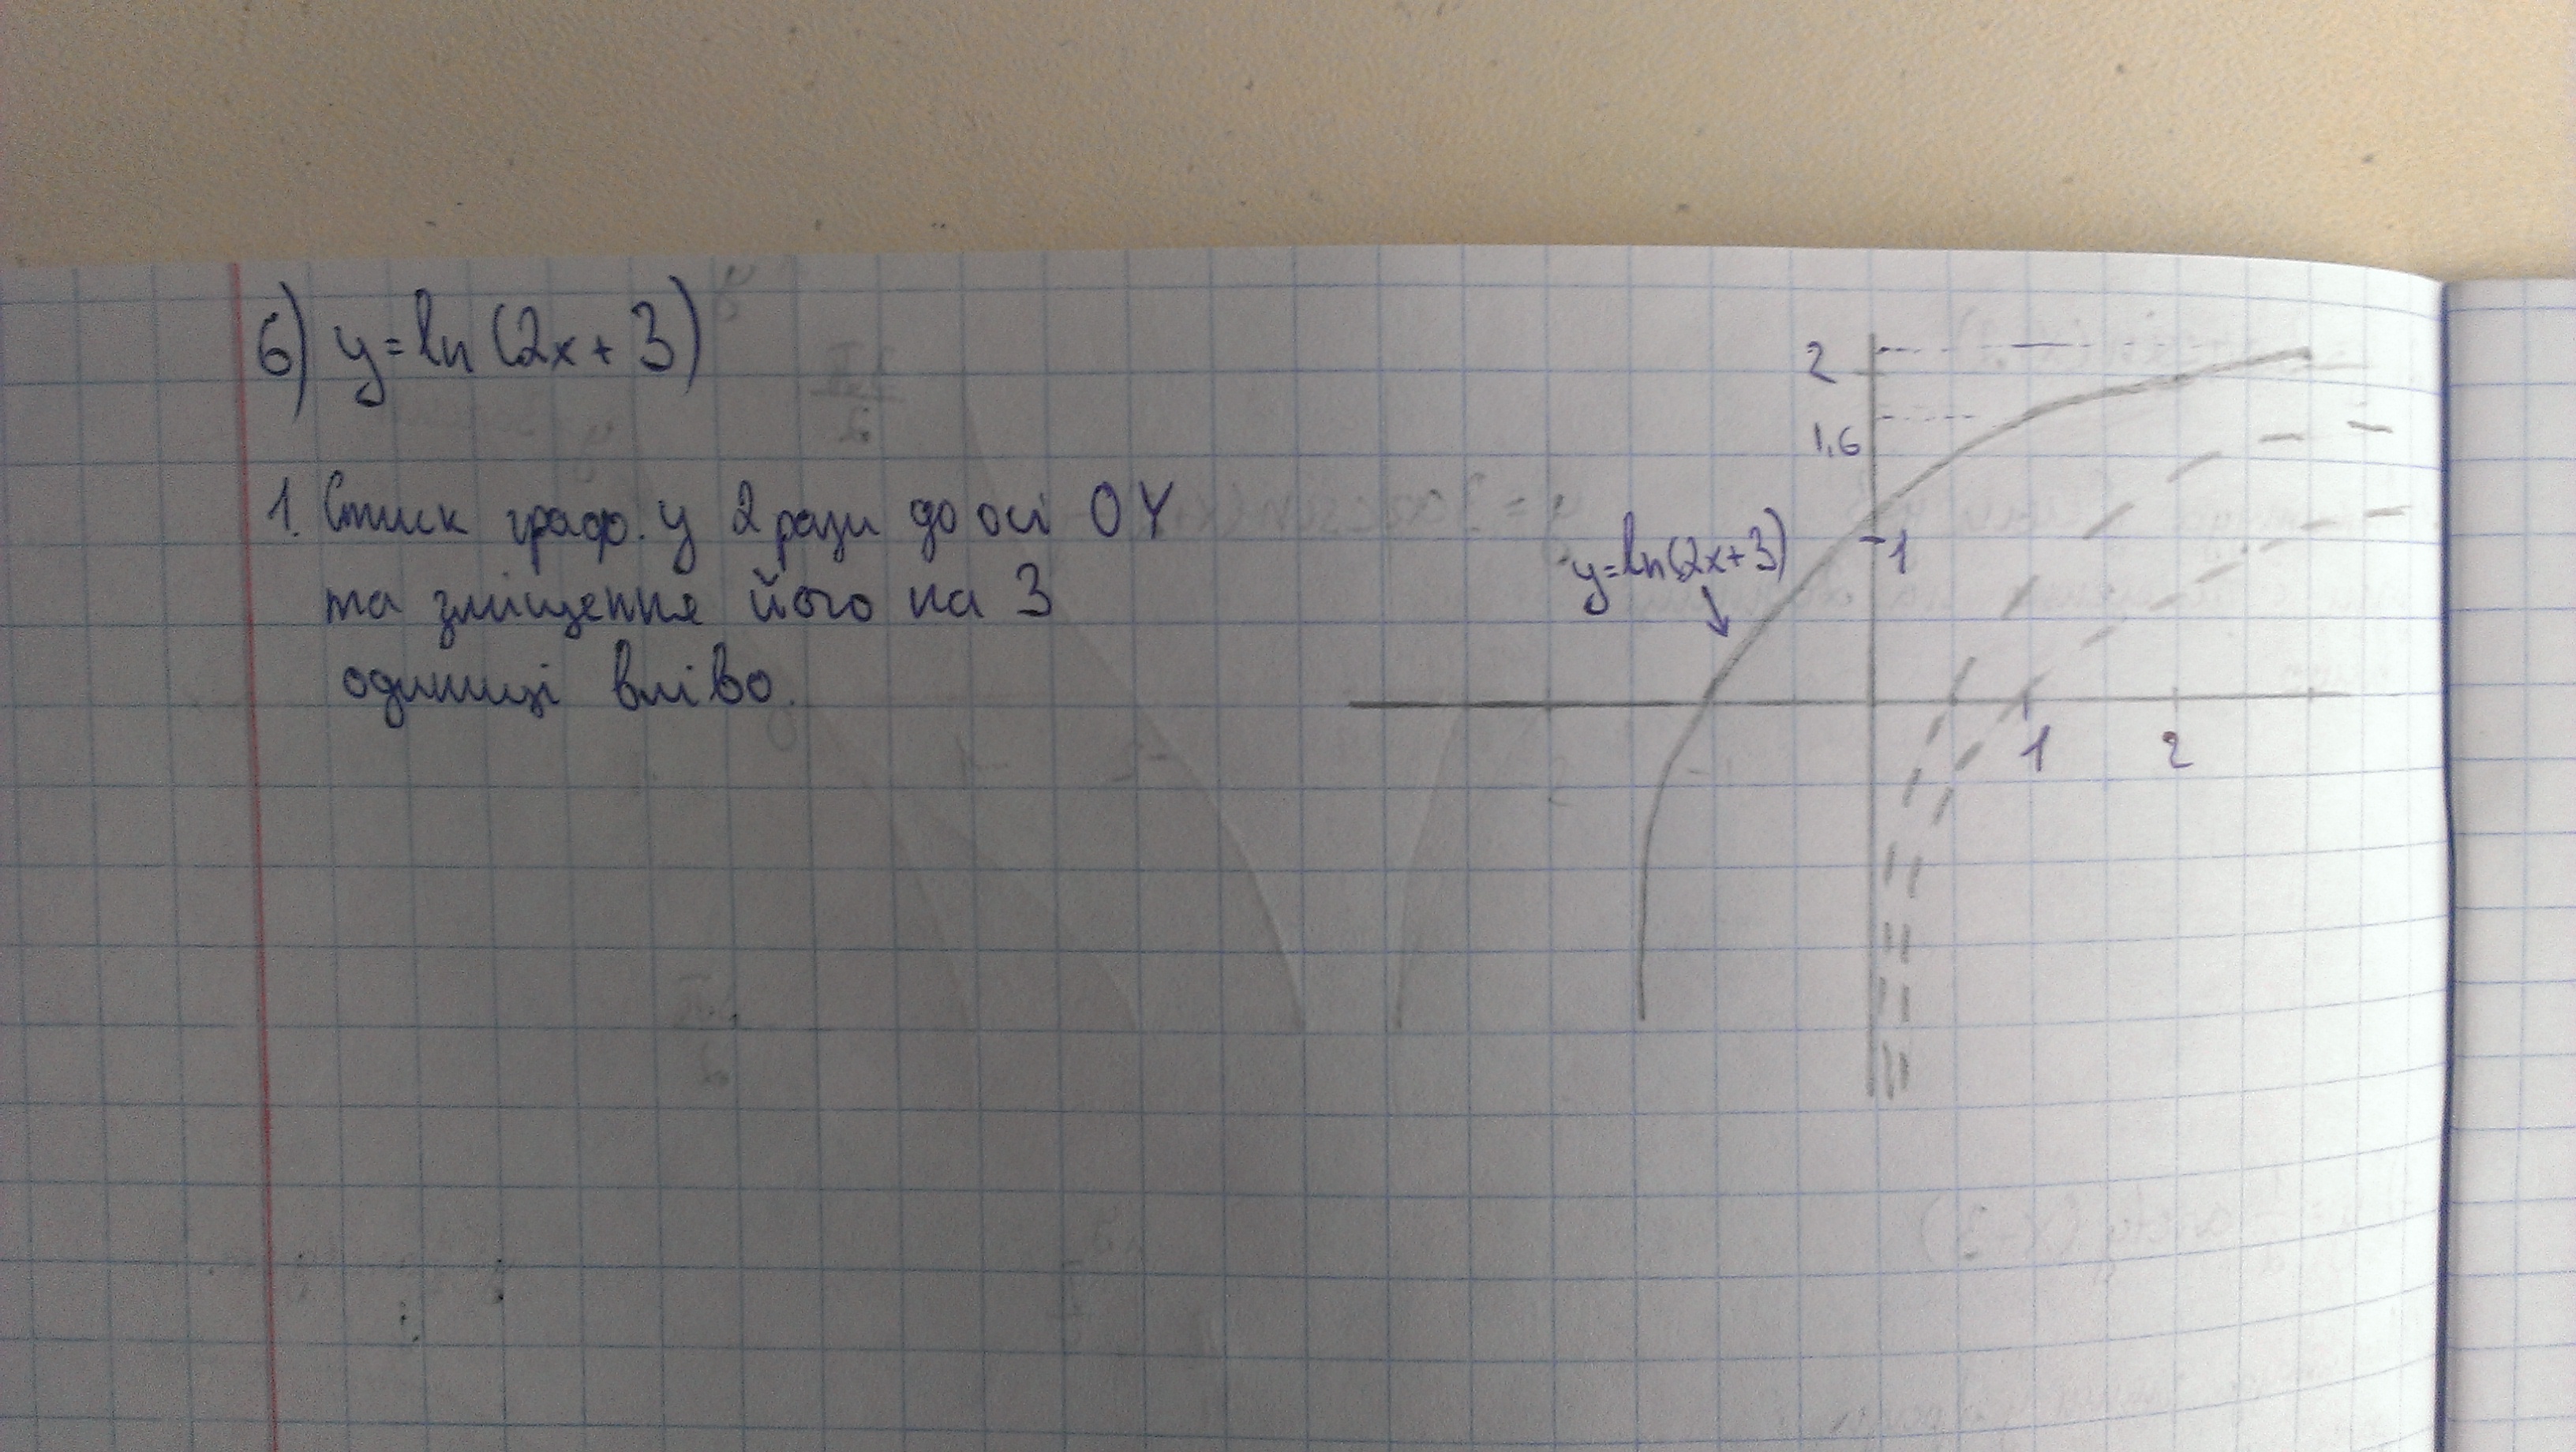 6) y=ln(2x+3)
1. Стиск граф. у 2 рази до осі OY
та зміщення його на 3
одиниці вліво.
2
1,6
1
y=ln(2x+3)
1
2